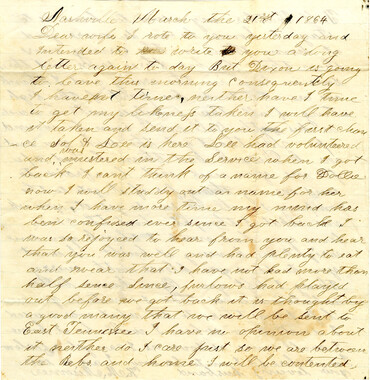 Nashville March the 21st 1864
Dear wife I rote to you yesterday and
intended to write you a long
letter again to day But Dixon is going
to leave this morning consequently
I have not time, neither have I time
to get my likeness taken I will have
it taken and send it to you the first chan
ce Lou is here Lou had volunteered
and was mustered in the service when I got
back I cant think of a name for Dollie
now I will study out a name for her
when I have more time my mind has
ben confused ever since I got back I
was so rejoyced to hear from you and hear
that you was well and had plenty to eat
and wear that I have not had more than
half sence since, furlows had played
out before we got back it is thought by
a good many that we will be sent to
East Tennessee I have no opinion about
it neither do I care just so we are between
the Rebs and home I will be contented,